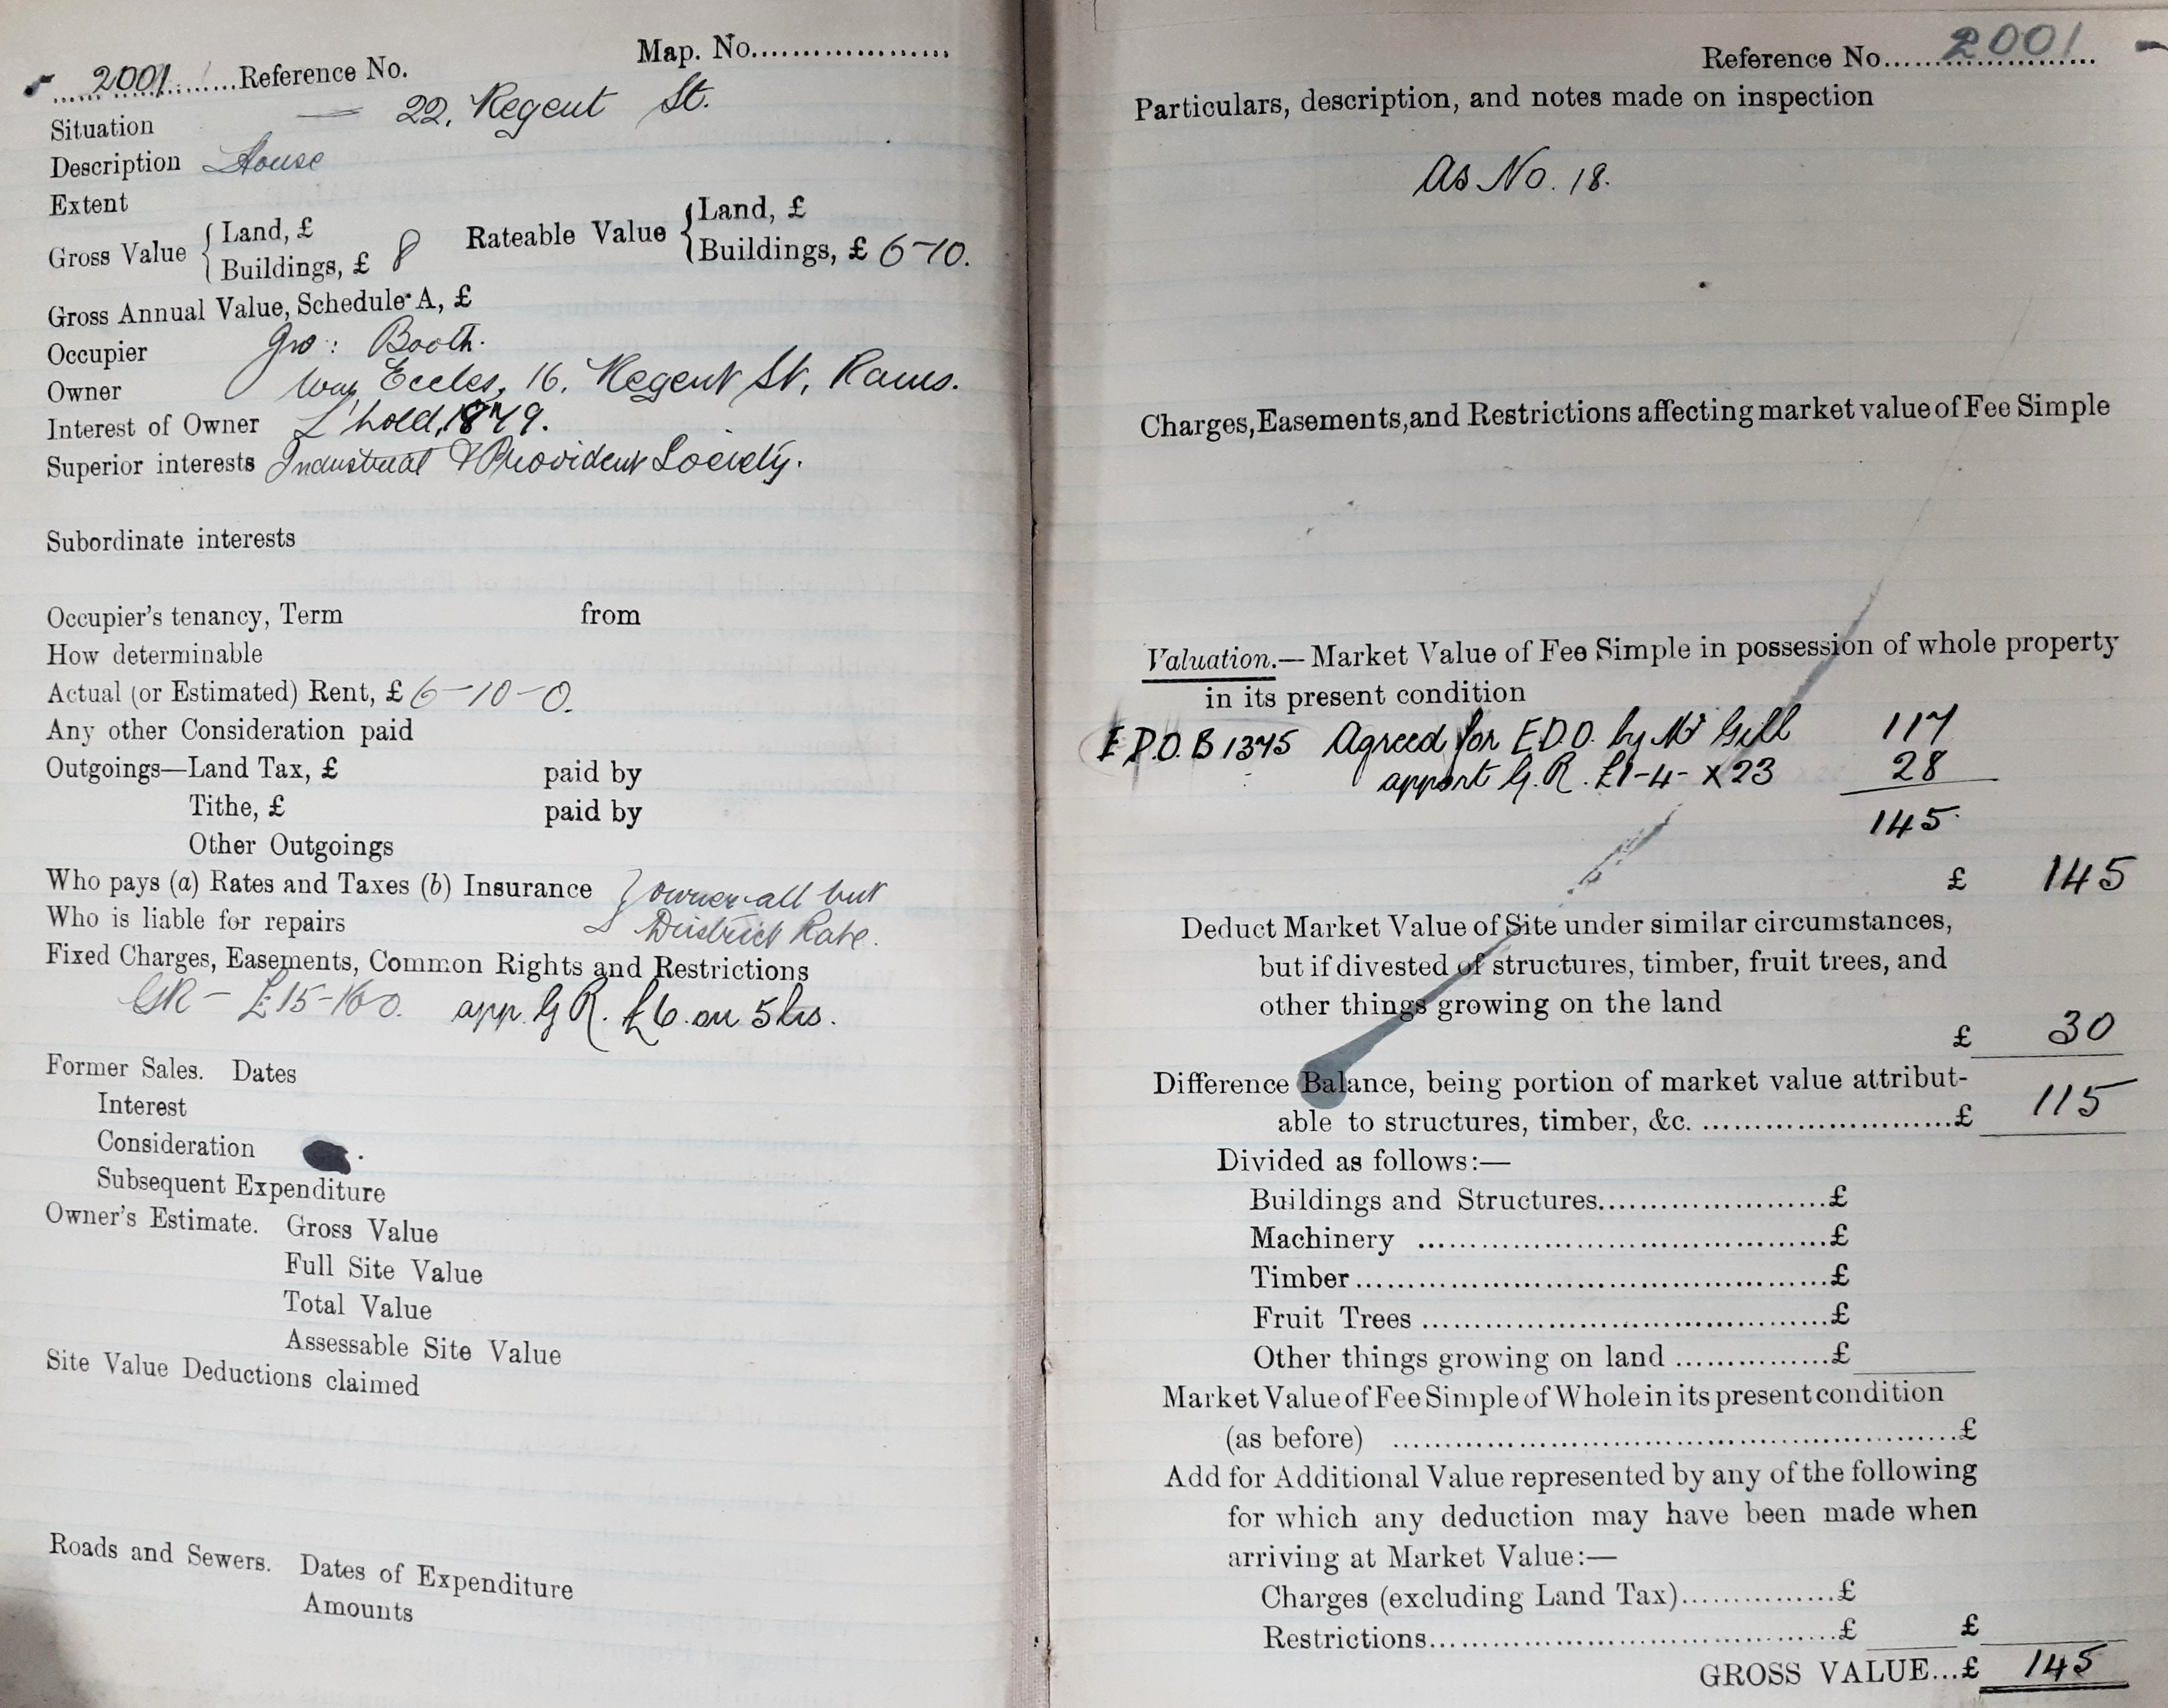 2001 Reference No. Map. No....................
Situation — 22, Regent St.
Description House
Extent
Gross Value { Land, £ Rateable Value { Land, £
Buildings, £ 8 Buildings, £ 6-10.
Gross Annual Value, Schedule A, £
Occupier Geo: Booth.
Owner Wm Eccles, 16, Regent St, Rams.
Interest of Owner L'hold, 1879.
Superior interests Industrial & Provident Society.
Subordinate interests
Occupier's tenancy, Term from
How determinable
Actual (or Estimated) Rent, £ 6-10-0.
Any other Consideration paid
Outgoings—Land Tax, £ paid by
Tithe, £ paid by
Other Outgoings
Who pays (a) Rates and Taxes (b) Insurance } owner all but
Who is liable for repairs District Rate.
Fixed Charges, Easements, Common Rights and Restrictions
GR - £15- app. G R. £6. on 5 hs.
Former Sales. Dates
Interest
Consideration
Subsequent Expenditure
Owner's Estimate. Gross Value
Full Site Value
Total Value
Assessable Site Value
Site Value Deductions claimed
Roads and Sewers. Dates of Expenditure
Amounts
Reference No. 2001
Particulars, description, and notes made on inspection
As No. 18.
Charges, Easements, and Restrictions affecting market value of Fee Simple
Valuation.—Market Value of Fee Simple in possession of whole property
in its present condition
D.O. B 1375 Agreed for E.D.O. by Mr Gill 117
apport G.R. £1-4- x 23 28
145
£ 145
Deduct Market Value of Site under similar circumstances,
but if divested of structures, timber, fruit trees, and
other things growing on the land
£ 30
Difference Balance, being portion of market value attribut-
able to structures, timber, &c. ...........................£ 115
Divided as follows:—
Buildings and Structures.........................£
Machinery .............................................£
Timber.....................................................£
Fruit Trees ..............................................£
Other things growing on land ................£
Market Value of Fee Simple of Whole in its present condition
(as before) ...............................................................£
Add for Additional Value represented by any of the following
for which any deduction may have been made when
arriving at Market Value:—
Charges (excluding Land Tax)................£
Restrictions..............................................£ £
GROSS VALUE...£ 145